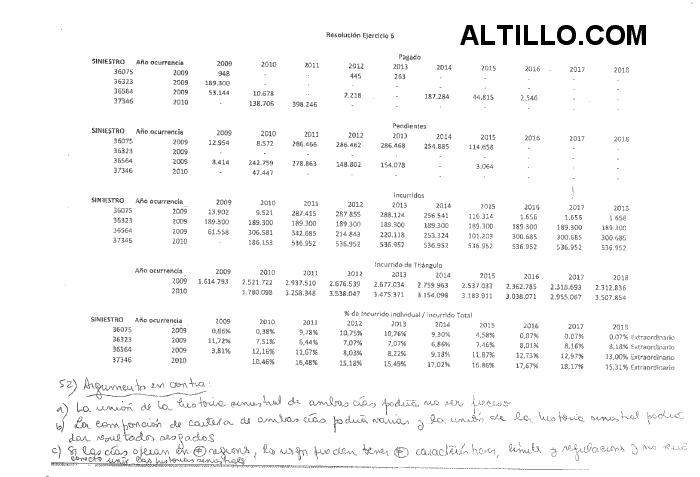 ALTILLO.COM
Resolución Ejercicio 6
Pagado
SINIESTRO Año ocurrencia 2009 2010 2011 2012 2013 2014 2015 2016 2017 2018
36075 2009 948 - - 445 263 - - - - -
36323 2009 189.300 - - - - - - - - -
36564 2009 53.144 10.678 - 2.218 - 187.284 44.815 2.546 - -
37346 2010 138.706 398.246 - - - - - - -
Pendientes
SINIESTRO Año ocurrencia 2009 2010 2011 2012 2013 2014 2015 2016 2017 2018
36075 2009 12.954 8.572 286.466 286.462 286.468 254.885 114.658 - - -
36323 2009 - - - - - - - - - -
36564 2009 8.414 242.759 278.863 148.802 154.078 - 3.064 - - -
37346 2010 47.447 - - - - - - - -
Incurridos
SINIESTRO Año ocurrencia 2009 2010 2011 2012 2013 2014 2015 2016 2017 2018
36075 2009 13.902 9.521 287.415 287.855 288.124 256.541 116.314 1.656 1.656 1.656
36323 2009 189.300 189.300 189.300 189.300 189.300 189.300 189.300 189.300 189.300 189.300
36564 2009 61.558 306.581 342.685 214.843 220.118 253.324 301.203 300.685 300.685 300.685
37346 2010 - 186.153 536.952 536.952 536.952 536.952 536.952 536.952 536.952 536.952
Incurrido de Triángulo
Año ocurrencia 2009 2010 2011 2012 2013 2014 2015 2016 2017 2018
2009 1.614.793 2.521.722 2.937.510 2.676.539 2.677.034 2.759.963 2.537.031 2.362.785 2.318.693 2.312.836
2010 1.780.098 3.258.348 3.538.047 3.475.371 3.154.098 3.183.911 3.038.071 2.955.067 3.507.854
% de Incurrido Individual / Incurrido Total
SINIESTRO Año ocurrencia 2009 2010 2011 2012 2013 2014 2015 2016 2017 2018
36075 2009 0,86% 0,38% 9,78% 10,75% 10,76% 9,30% 4,58% 0,07% 0,07% 0,07% Extraordinario
36323 2009 11,72% 7,51% 6,44% 7,07% 7,07% 6,86% 7,46% 8,01% 8,16% 8,18% Extraordinario
36564 2009 3,81% 12,16% 11,67% 8,03% 8,22% 9,18% 11,87% 12,73% 12,97% 13,00% Extraordinario
37346 2010 10,46% 16,48% 15,18% 15,45% 17,02% 16,86% 17,67% 18,17% 15,31% Extraordinario
52) Argumentos en contra:
a) La unión de la historia siniestral de ambas cías podría no ser
b) La composición de cartera de ambas cías podría variar y la unión de la historia siniestral podría
dar resultados sesgados
c) Si las cías operan en ≠ regiones, los pueden tener ≠ características, límite y regulaciones y no
correcto unir las historias siniestrales